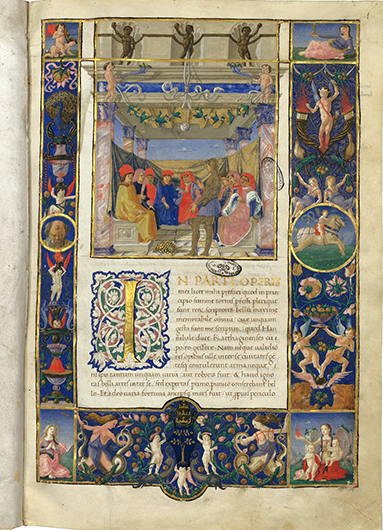 IN PARTE OPERIS
mei licet mihi prefari quod in prin
cipio summe totius professi plerique
sunt rerum scriptores bellum maxime
memorabile omnium que unquam
gesta sint me scripturum quod Han
nibale duce Karthaginenses cum
gessere. Nam neque ualidio
res opibus ulle inter se ciuitates gen
tesq contulerunt arma neque
tantum unquam uirium aut roboris fuit & haud igno
tas belli artes inter se sed expertas primo punico conserebant bel
lo Et adeo uaria fortuna ancepsq mars fuit ut propius periculo